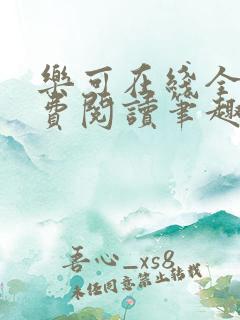 樂可在綫全
費閱讀筆趣
吾心_xs8
未经同意禁止转载